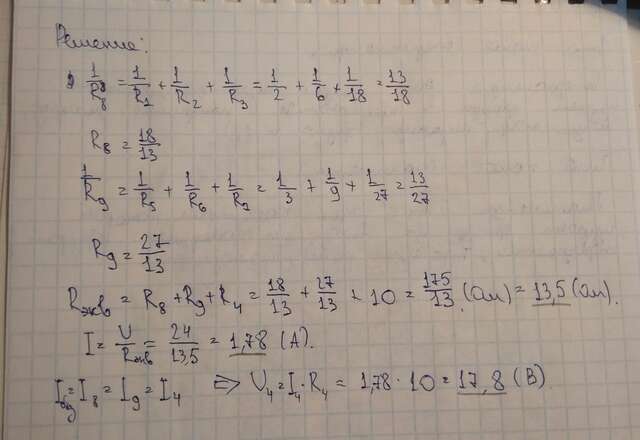 Решение:
1/R8 = 1/R1 + 1/R2 + 1/R3 = 1/2 + 1/6 + 1/18 = 13/18
R8 = 18/13
1/R9 = 1/R5 + 1/R6 + 1/R2 = 1/3 + 1/9 + 1/27 = 13/27
R9 = 27/13
Rэкв = R8 + R9 + R4 = 18/13 + 27/13 + 10 = 175/13 (Ом) = 13,5 (Ом).
I = U/Rэкв = 24/13,5 = 1,78 (А).
Iобщ = I8 = I9 = I4 => U4 = I4 · R4 = 1,78 · 10 = 17,8 (В)